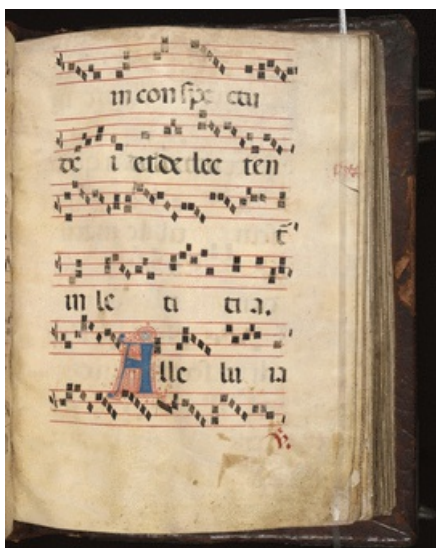 in conspe ctu
de i et de lec ten
t̄
in le ti ti a.
Alle lu ia
℣.